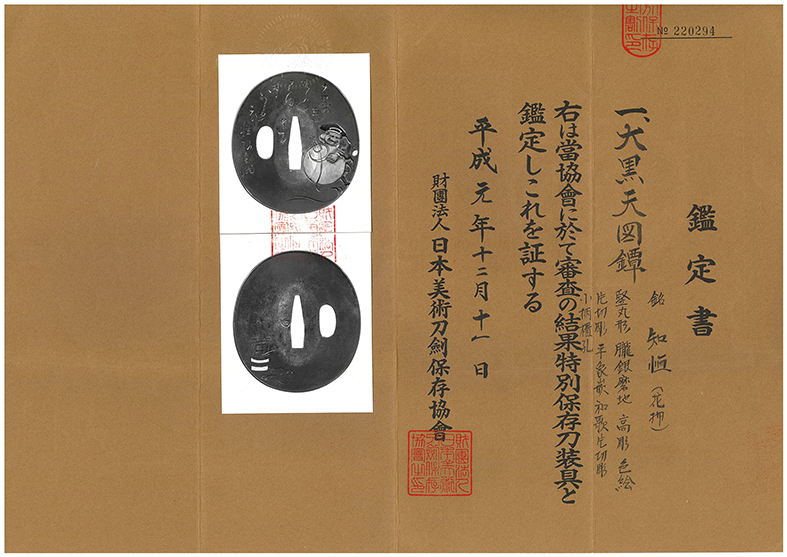 № 220294
鑑定書
一、大黒天図鐔
銘 知恒(花押)
竪丸形 朧銀磨地 高彫 色絵
片切彫 平象嵌 和歌片切彫
小柄櫃孔
右は當協會に於て審査の結果特別保存刀装具と
鑑定しこれを証する
平成元年十二月十一日
財團法人 日本美術刀劍保存協會